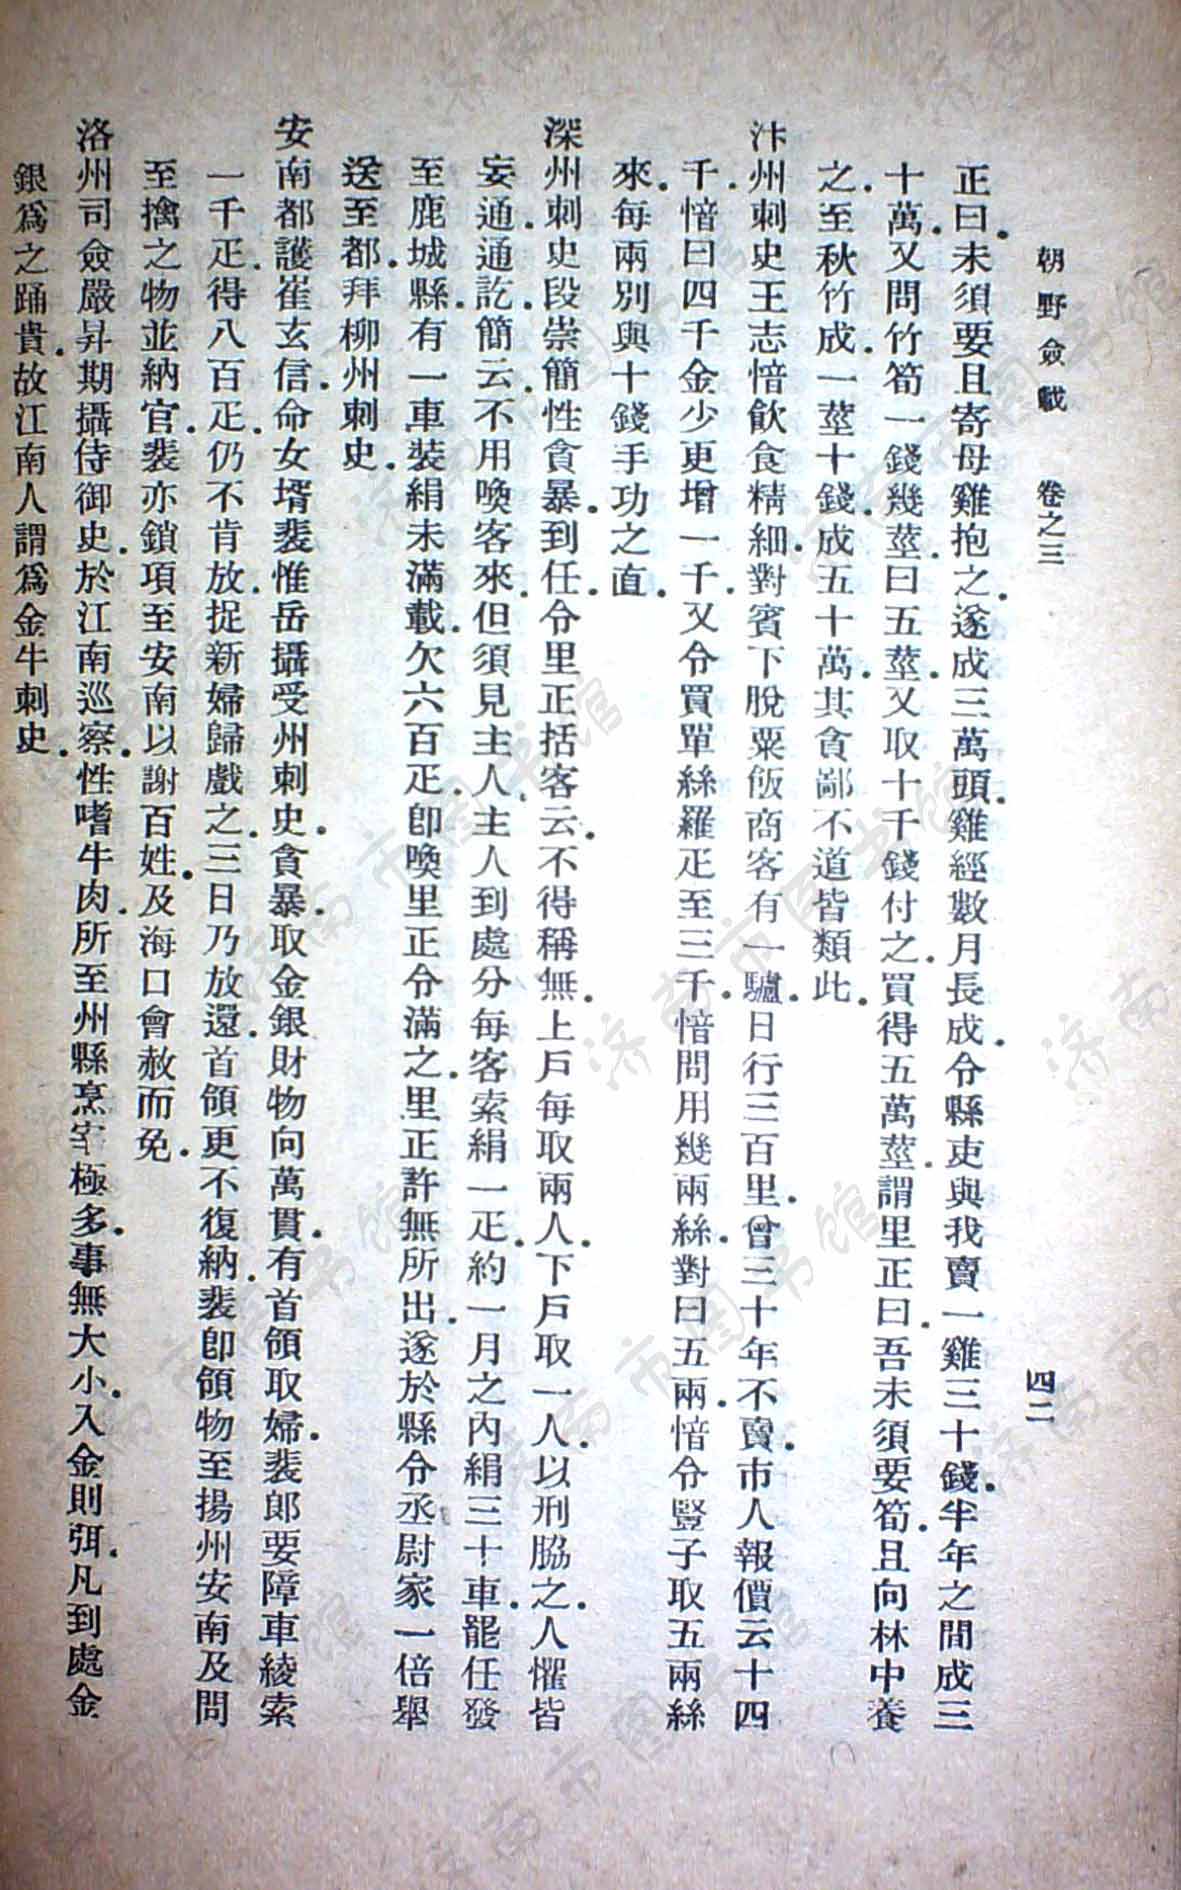 朝野僉載 卷之三 四二
正曰。未須要且寄母雞抱之。遂成三萬頭。雞經數月長成。令縣吏與我賣一雞三十錢。半年之間成三
十萬。又問竹筍一錢幾莖。曰五莖。又取十千錢付之。買得五萬莖。謂里正曰。吾未須要筍。且向林中養
之。至秋竹成。一莖十錢。成五十萬。其貪鄙不道皆類此。
汴州刺史王志愔飲食精細。對賓下脫粟飯商客有一驢。日行三百里。曾三十年不賣。市人報價云十四
千。愔曰四千金少更增一千。又令買單絲羅疋至三千。愔問用幾兩絲。對曰五兩。愔令豎子取五兩絲
來。每兩別與十錢手功之直。
深州刺史段崇簡性貪暴。到任。令里正括客云。不得稱無。上戶每取兩人。下戶取一人。以刑脇之。人懼皆
妄通。通訖。簡云。不用喚客來。但須見主人。主人到處分每客索絹一疋。約一月之內絹三十車。罷任發
至鹿城縣。有一車裝絹未滿載。欠六百疋。卽喚里正令滿之。里正許無所出。遂於縣令丞尉家一倍舉
送至都。拜柳州刺史。
安南都護崔玄信。命女壻裴惟岳攝受州刺史。貪暴。取金銀財物向萬貫。有首領取婦。裴郎要障車綾索
一千疋。得八百疋。仍不肯放。捉新婦歸戲之。三日乃放還。首領更不復納。裴卽領物至揚州安南及問
至擒之物並納官。裴亦鎖項至安南以謝百姓。及海口會赦而免。
洛州司僉嚴昇期攝侍御史。於江南巡察。性嗜牛肉。所至州縣烹宰極多。事無大小。入金則弭。凡到處金
銀爲之踊貴。故江南人謂爲金牛刺史。